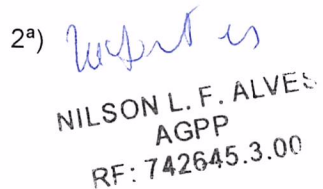 2ª)
NILSON L. F. ALVES
AGPP
RF: 742645.3.00